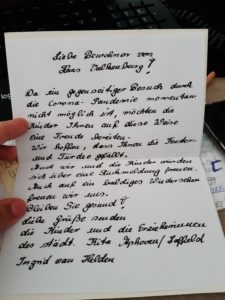 Liebe Bewohner von
Haus Valkenburg!
Da ein gegenseitiger Besuch durch
die Corona-Pandemie momentan
nicht möglich ist, möchten die
Kinder Ihnen auf diese Weise
eine Freude bereiten.
Wir hoffen, dass Ihnen die
und Türdeko gefällt.
und wir und die Kinder würden
sich über eine Rückmeldung freuen.
Auch auf ein baldiges Wiedersehen
freuen wir uns.
Bleiben Sie gesund!
Liebe Grüße senden
die Kinder und die Erzieherinnen
des städt. Kita Aphoven/Laffeld
Ingrid van Helden